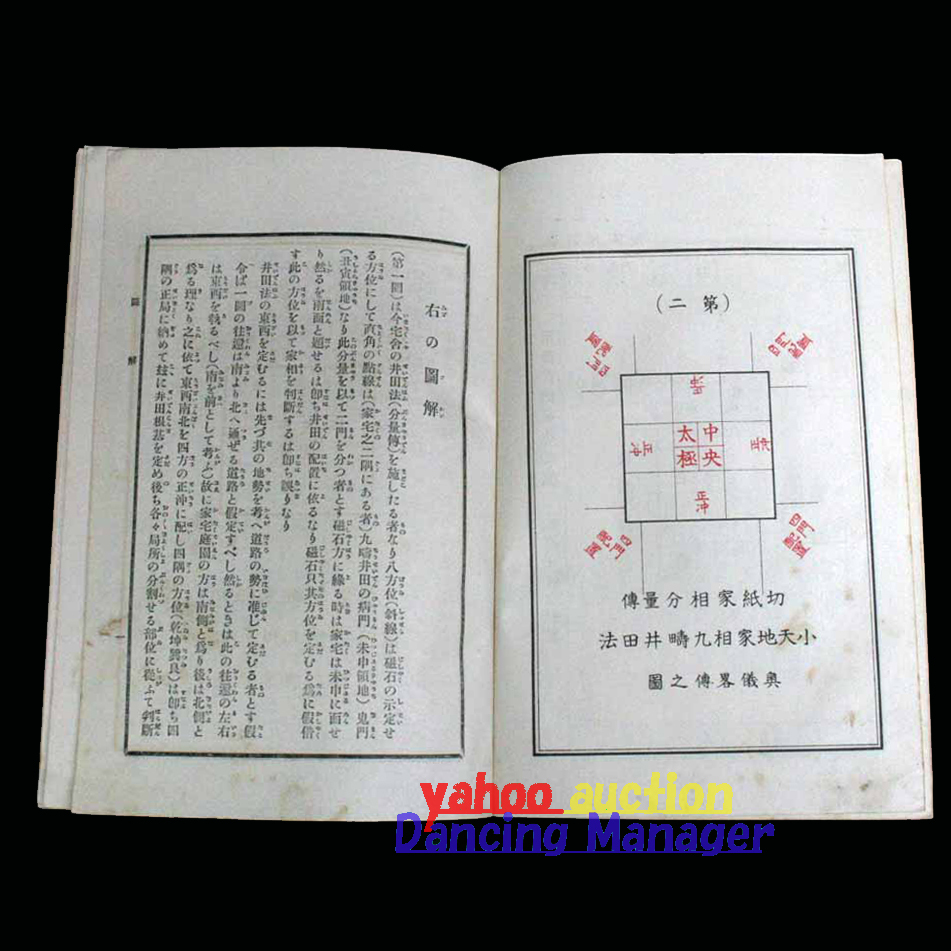 （第二）
四門
配
置
四門
配置
正冲
正冲
中央
太極
正冲
正冲
四門
配
置
四門
配
置
切紙家相分量傳
小天地家相九疇井田法
奥儀畧傳之圖
右の圖解
（第一圖）は今宅舍の井田法（分量傳）を施したる者なり八方位（斜線）は磁石の示定せ
る方位にして直角の點線は（家宅之二隅にある者）九疇井田の病門（未申領地）鬼門
（丑寅領地）なり此分量を以て二門を分つ者とす磁石方に緣る時は家宅は未申に面せ
り然るを南面と題せるは卽ち井田の配置に依るなり磁石只其方位を定むる爲に假借
す此の方位を以て家相を判斷するは卽ち誤りなり
井田法の東西を定むるには先づ其の地勢を考へ道路の勢に准じて定むる者とす假
令ば一圖の往還は南より北へ通ぜる道路と假定すべし然るときは此の往還の左右
は東西を執るべし（南を前として考ふ）故に家宅庭園の方は南側と爲り後は北側と
爲る理なり之に依て東西南北を四方の正冲に配し四隅の方位（乾坤巽艮）は卽ち四
隅の正局に納めて玆に井田根基を定め後ち各々局所の分割せる部位に從ふて判斷
圖解
一
yahoo auction
Dancing Manager